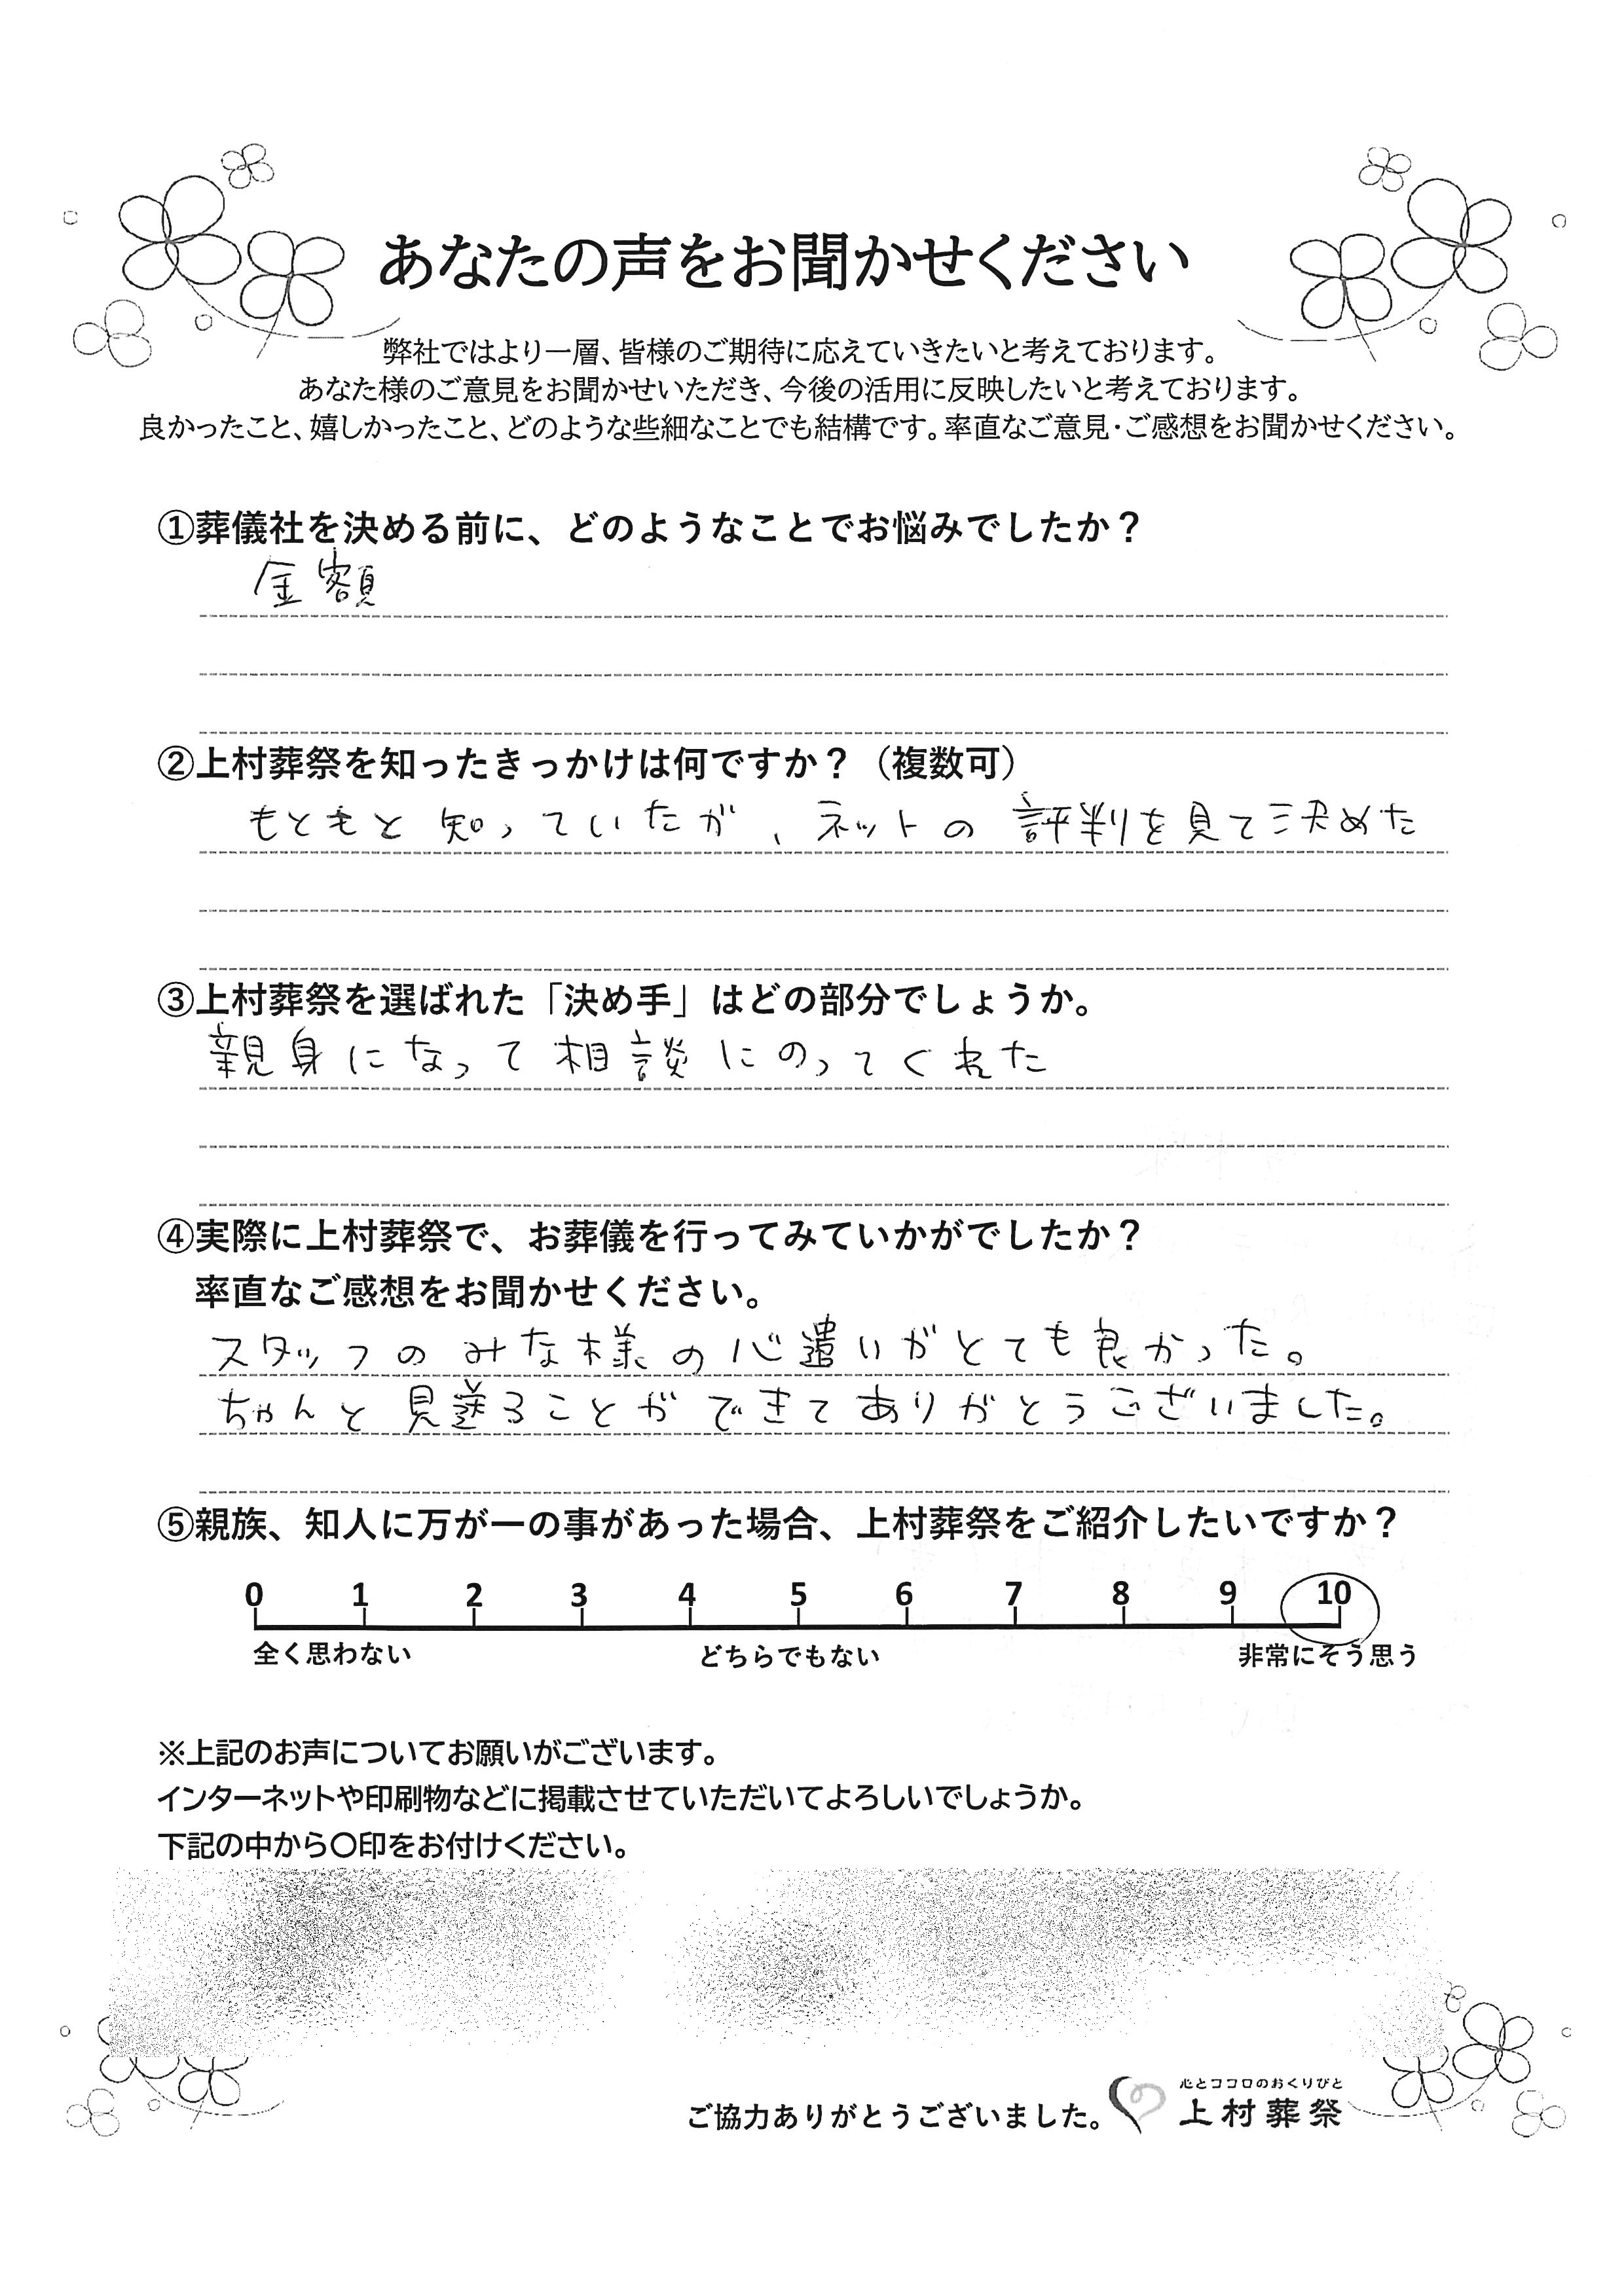 あなたの声をお聞かせください
弊社ではより一層、皆様のご期待に応えていきたいと考えております。
あなた様のご意見をお聞かせいただき、今後の活用に反映したいと考えております。
良かったこと、嬉しかったこと、どのような些細なことでも結構です。率直なご意見・ご感想をお聞かせください。
①葬儀社を決める前に、どのようなことでお悩みでしたか？
金額
②上村葬祭を知ったきっかけは何ですか？（複数可）
もともと知っていたが、ネットの評判を見て決めた
③上村葬祭を選ばれた「決め手」はどの部分でしょうか。
親身になって相談にのってくれた
④実際に上村葬祭で、お葬儀を行ってみていかがでしたか？
率直なご感想をお聞かせください。
スタッフのみな様の心遣いがとても良かった。
ちゃんと見送ることができてありがとうございました。
⑤親族、知人に万が一の事があった場合、上村葬祭をご紹介したいですか？
0 1 2 3 4 5 6 7 8 9 10
全く思わない どちらでもない 非常にそう思う
※上記のお声についてお願いがございます。
インターネットや印刷物などに掲載させていただいてよろしいでしょうか。
下記の中から〇印をお付けください。
心とココロのおくりびと
ご協力ありがとうございました。 上村葬祭